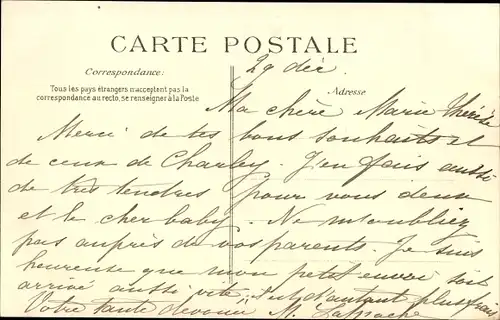 CARTE POSTALE
29 déc.
Correspondance:
Adresse
Tous les pays étrangers n'acceptent pas la
correspondance au recto, se renseigner à la Poste
Ma chère Marie Thérèse
Merci de tes bons souhaits et
de ceux de Charley. J'en fais aussi
de très tendres pour vous deux
et le cher baby. Ne m'oubliez
pas auprès de vos parents. Je suis
heureuse que mon petit envoi soit
arrivé aussi vite, d'autant plus frais
Votre tante dévouée M.